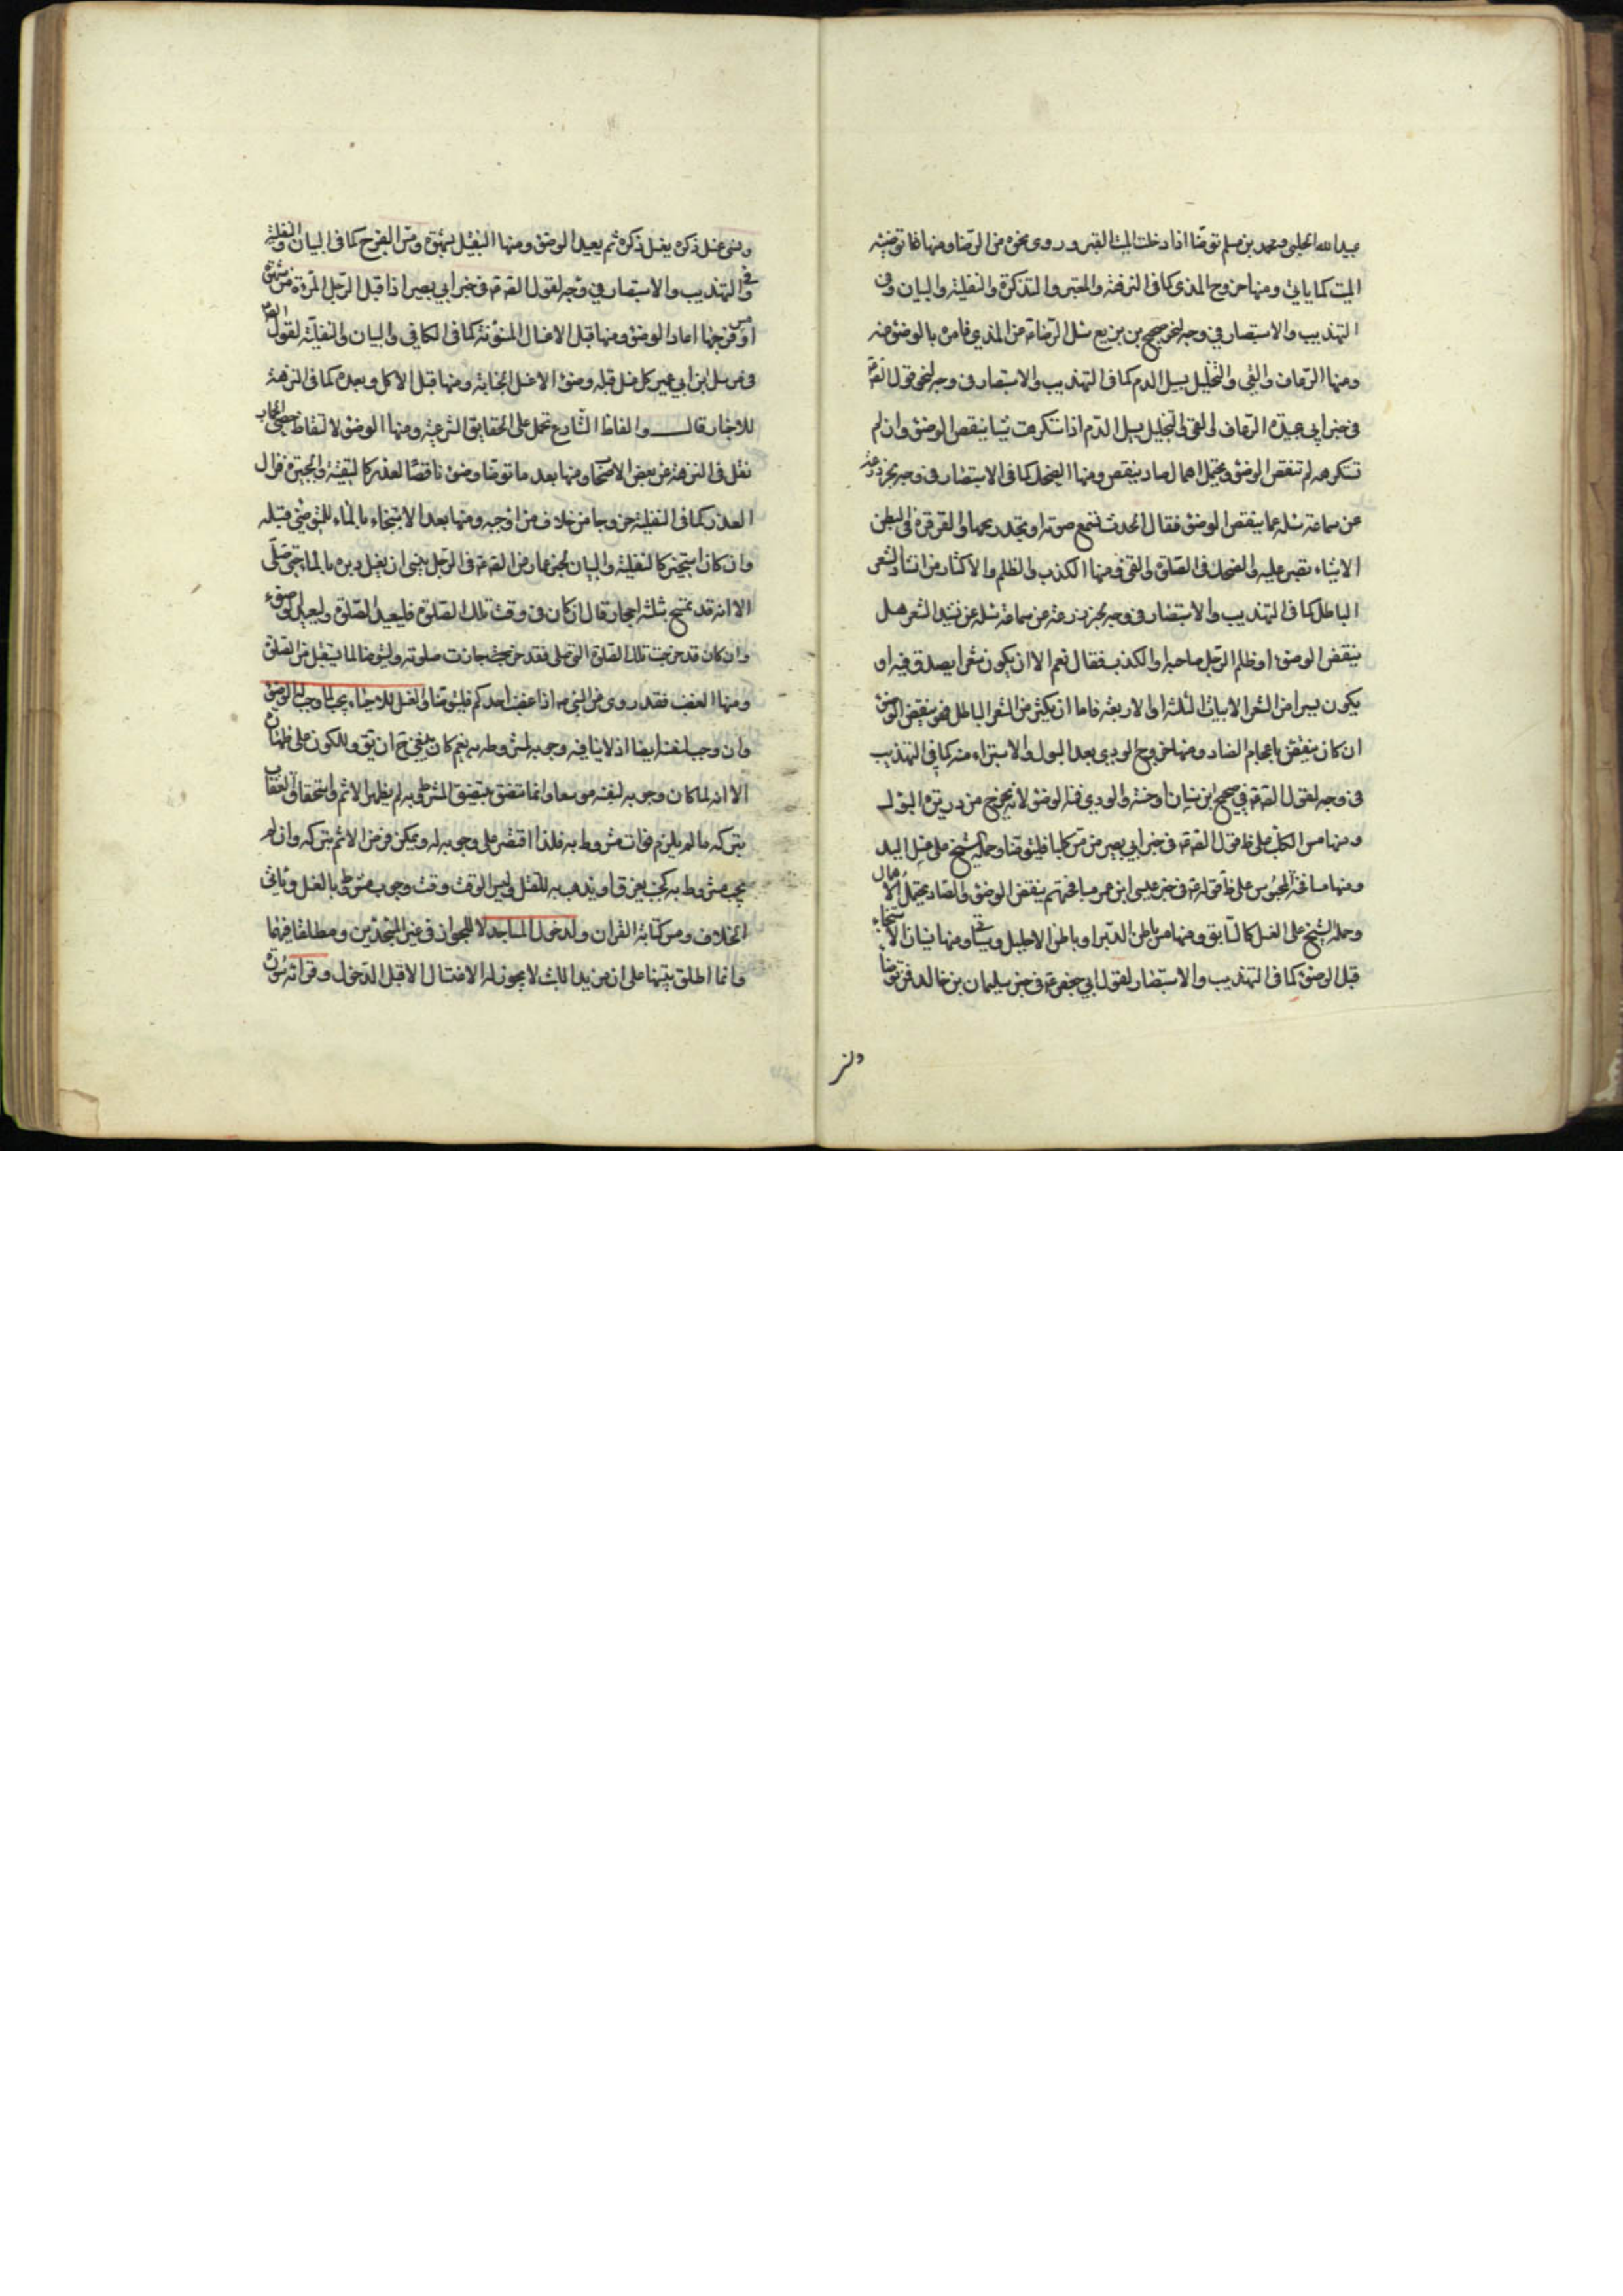 عبيدالله الحلبي ومحمد بن مسلم توضأ اذا ادخلت الميت القبر وروى نحوه من الرضا ومنها توضئة
الميت كما ياتي ومنها خروج المذي كما في النزهة والمعتبر والتذكرة والنفلية والبيان وفي
التهذيب والاستبصار في وجه لخبر صحيح بن بزيع سئل الرضا ع من المذي فامره بالوضوء منه
ومنها الرعاف والقي والتخليل يسيل الدم كما في التهذيب والاستبصار في وجه لنحو قول الصم
في خبر ابي عبيدة الرعاف والقي والتخليل يسيل الدم اذا استكرهت شيئا ينقض الوضوء وان لم
تستكرهه لم تنقض الوضوء ويحتمل اهمال صاد ينقص ومنها الضحك كما في الاستبصار في وجه بخبر زرعة
عن سماعة سئله عما ينقض الوضوء فقال الحدث تسمع صوته او تجد ريحها والقرقرة في البطن
الا شيئا تصبر عليه والضحك في الصلوة والقي ومنها الكذب والظلم والاكثار من انشاد الشعر
الباطل كما في التهذيب والاستبصار في وجه بخبر زرعة عن سماعة سئله عن نشيد الشعر هل
ينقض الوضوء او ظلم الرجل صاحبه او الكذب فقال نعم الا ان يكون شعرا يصدق فيه او
يكون يسيرا من الشعر الابيات الثلثة او الاربعة فاما ان يكثر من الشعر الباطل فهو ينقض الوضوء
ان كان ينقض باعجام الضاد ومنها خروج الودي بعد البول والاستبراء منه كما في التهذيب
في وجه لقول الصم في صحيح ابن سنان او حسنه والودي فمنه الوضوء لانه يخرج من دريرة البول
ومنها مس الكلب على ظ قول الصم في خبر ابي بصير من مس كلبا فليتوضأ وحمله الشيخ على غسل اليد
ومنها مصافحة المجوس على ظ قوله ع في خبر عيسى ابن عمر مصافحتهم ينقض الوضوء والصاد يحتمل الاهمال
وحمله الشيخ على الغسل كالسابق ومنها مس باطن الدبر او باطن الاحليل وسياتي ومنها نسيان الاستنجاء
قبل الوضوء كما في التهذيب والاستبصار لقول ابي جعفر ع في خبر سليمان بن خالد فيمن توضأ
ونسي غسل ذكره يغسل ذكره ثم يعيد الوضوء ومنها التقبيل بشهوة ومس الفرج كما في البيان والنفلية
وفي التهذيب والاستبصار في وجه لقول الصم في خبر ابي بصير اذا قبل الرجل المرءة من شهوة
او مس فرجها اعاد الوضوء ومنها قبل الاغسال المسنونة كما في الكافي والبيان والنفلية لقول الصم
في مرسل ابن ابي عمير كل غسل قبله وضوء الا غسل الجنابة ومنها قبل الاكل وبعده كما في النزهة
للاخبار قال والفاظ الشارع تحمل على الحقايق الشرعية ومنها الوضوء لالتقاط حصى الجمار
نقل في النزهة عن بعض الاصحاب ومنها بعد ما توضأ وضوء ناقصا لعذر كالتقية والجبيرة فزال
العذر كما في النفلية خروجا من خلاف من اوجبه ومنها بعد الاستنجاء بالماء للمتوضي قبله
وان كان استجمر كالنفلية والبيان لخبر عمار من الصم في الرجل ينسى ان يغسل دبره بالماء حتى صلى
الا انه قد تمسح بثلثة احجار قال ان كان في وقت تلك الصلوة فليعد الصلوة وليعد الوضوء
وان كان قد خرجت تلك الصلوة التي صلى فقد جازت صلوته وليتوضأ لما يستقبل من الصلوة
ومنها الغضب فقد روى عن النبي ص اذا غضب احدكم فليتوضأ والغسل للاحياء يجب لما وجب له الوضوء
وان وجب لنفسه ايضا اذ لا ينافيه وجوبه لمشروطه به نعم كان ينبغي ح ان يق وللكون على طهارة
الا انه لما كان وجوبه لنفسه موسعا وانما يتضيق بتضيق المشروط به لم يظهر الاثم واستحقاق العقاب
بتركه ما لم يلزم فوات مشروط به فلذا اقتصر على وجوبه له ويمكن فرض الاثم بتركه وان لم
يجب مشروط به
الخلاف ومس كتابة القران ولدخول المساجد لا للجواز في غير المسجدين ومطلقا فيهما
وانما اطلق تنبيها على ان مريد اللبث لا يجوز له الاغتسال الا قبل الدخول وقرائة سورة
دنر